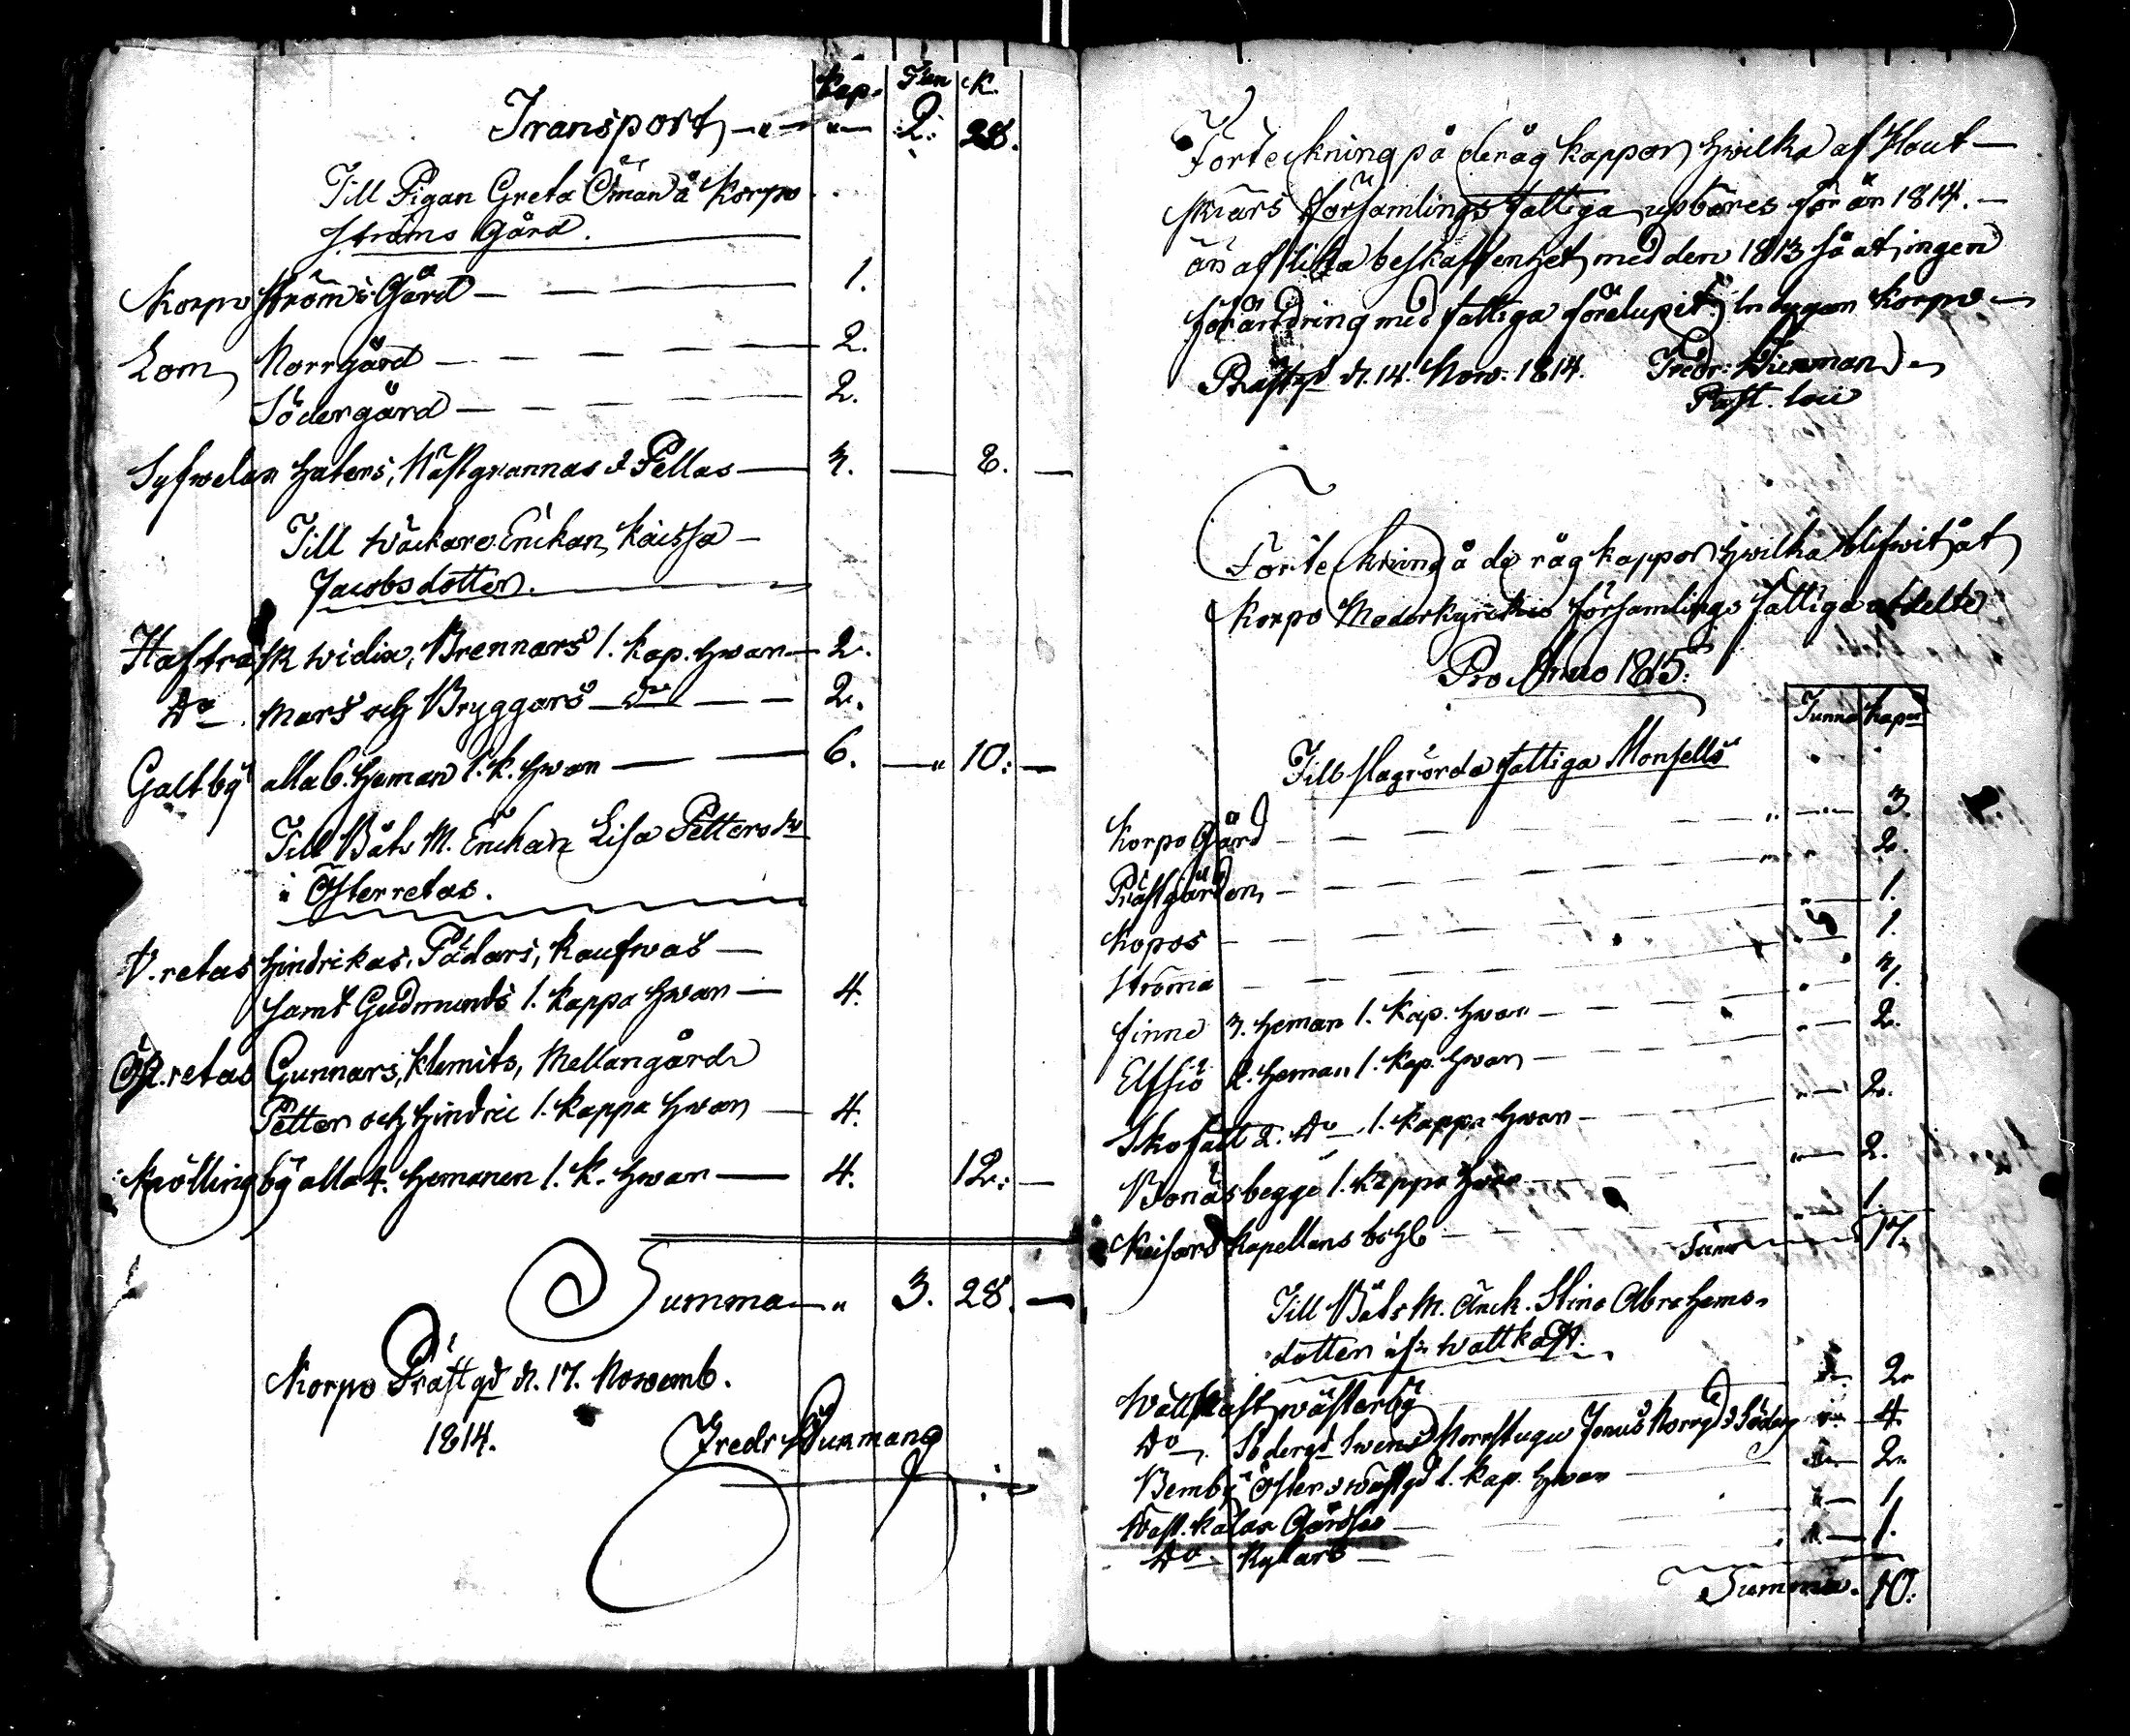 Kap. Tun K.
Transport — " — " — 2. 28.
Till Pigan Greta Öman å Korpo
ströms Gård.
Korpo ströms Gård — 1.
Lom Norrgård — 2.
Södergård — 2.
Syfwelax Haters, Nästgrannas & Pellas — 3. — 8. —
Till Wäckare Enckan Kaissa
Jacobsdotter.
Hafträsk Widix, Brennars 1. kap. hwar — 2.
Do Mars och Bryggars — do — 2.
Galtby alla 6. Heman 1. k. hwar — 6. — " 10. —
Till Båts M. Enckan Lisa Petters dr
i Österretas.
W. retas Hindrikas, Pädars, Kaufwas —
samt Gudmunds 1. kappa hwar — 4.
Öst. retas Gunnars, Klemits, Mellangårds
Petter och Hindric 1. kappa hwar — 4.
Kyölling by alla 4. Hemanen 1. k. hwar — 4. 12. —
Summa — " 3. 28. —
Korpo Prästgd d. 17. Novemb.
1814.
Fredr Wunman
Förteckning på de råg kappor hwilka af Hout-
skiärs Församlings fattiga upbäres för år 1814. —
är af lika beskaffenhet med den 1813 så at ingen
förändring med fattiga förelupit, Korpo —
Prästgd d. 14. Now. 1814. Fredr: Wunman
Past. loci
Förteckning å de råg kappor hwilka blifwit åt
Korpo Moderkyrckio församlings fattiga afdelte
Pro Anno 1815.
Tunna kapor
Till fattiga Monsells
Korpo Gård — " — 3.
Prästgården — " 2.
Kopos — " — 1.
Ströma — " 1.
Finne 3. Heman 1. Kap. hwar — " — 3.
Elfsiö 2. Heman 1. Kap. hwar — " — 2.
Skofält 2. do 1. kappa hwar — " — 2.
Bonäs begge 1. kappa hwar — " — 2.
Kapellans bohl — " 1.
Sum 17.
Till Båts M. Änck. Stina Abrahams-
dotter Wattkast.
Wattkast wästerby — 2.
Do Södergd Swens Norrstugu Jonus Norrgd & Söderg — 4.
Bemby Öster & Wästgd 1. kap. hwar — 2.
Wäst. Kalax Gårdsis — 1.
Do Rylars — 1.
Summa. 10.